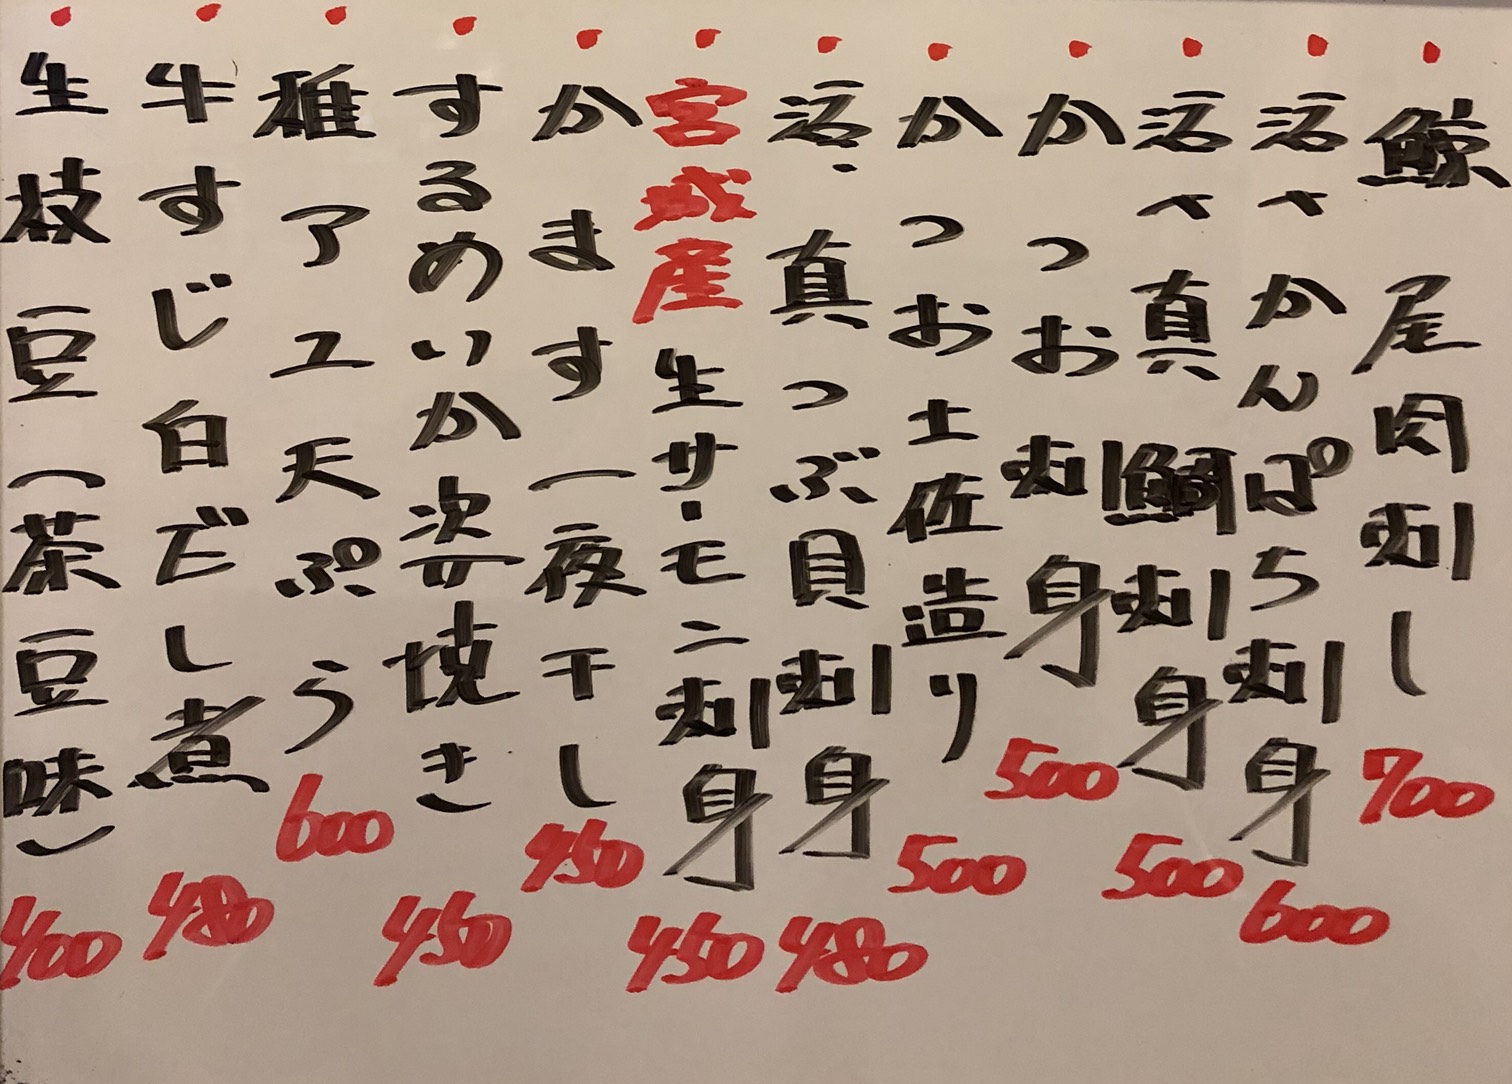 ・鯨尾肉刺し 700
・活〆かんぱち刺身 600
・活〆真鯛刺身 500
・かつお刺身 500
・かつお土佐造り 500
・活・真つぶ貝刺身 480
・宮城産生サーモン刺身 450
・かます一夜干し 450
・するめいか姿焼き 450
・稚アユ天ぷら 600
・牛すじ白だし煮 480
・生枝豆(茶豆味) 400